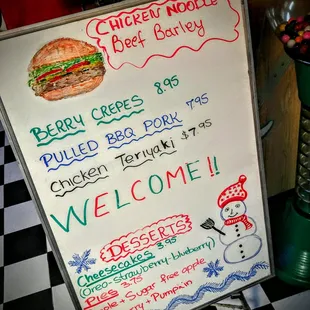 CHICKEN NOODLE
Beef Barley
BERRY CREPES 8.95
PULLED BBQ PORK 7.95
Chicken Teriyaki $7.95
WELCOME!!
DESSERTS
Cheesecakes 3.95
(oreo-strawberry-blueberry)
PIES 3.75
Sugar free apple
+ Pumpkin